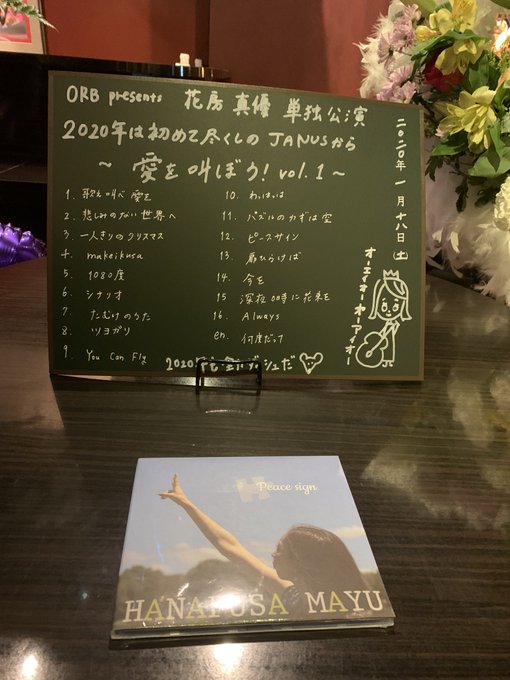 ORB presents 花房 真優 単独公演
2020年は初めて尽くしのJANUSから
～ 愛を叫ぼう! vol.1 ～
1. 歌え叫べ 愛を
2. 悲しみのない世界へ
3. 一人きりのクリスマス
4. makeikusa
5. 1080度
6. シナリオ
7. たむけのうた
8. ツヨガリ
9. You Can Fly
10. わっはっは
11. パズルのカずは空
12. ピースサイン
13. 扉ひらけば
14. 今を
15 深夜0時に花束を
16. Always
en. 何度だって
2020
ュだ
二〇二〇年 一月十八日(土)
オーエイオーオーアイオー
Peace sign
HANAFUSA MAYU